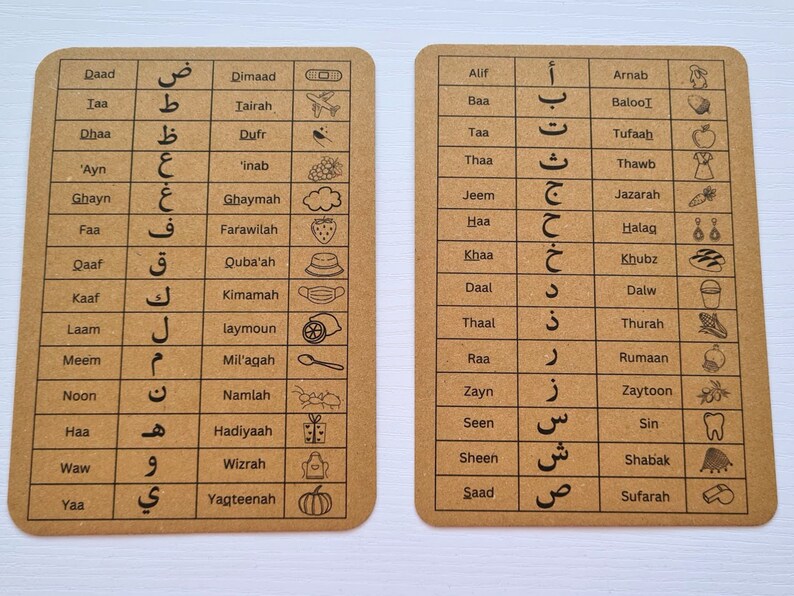 Daad ض Dimaad
Taa ط Tairah
Dhaa ظ Dufr
'Ayn ع 'inab
Ghayn غ Ghaymah
Faa ف Farawilah
Qaaf ق Quba'ah
Kaaf ك Kimamah
Laam ل laymoun
Meem م Mil'aqah
Noon ن Namlah
Haa هـ Hadiyaah
Waw و Wizrah
Yaa ي Yaqteenah
Alif أ Arnab
Baa ب BalooT
Taa ت Tufaah
Thaa ث Thawb
Jeem ج Jazarah
Haa ح Halaq
Khaa خ Khubz
Daal د Dalw
Thaal ذ Thurah
Raa ر Rumaan
Zayn ز Zaytoon
Seen س Sin
Sheen ش Shabak
Saad ص Sufarah